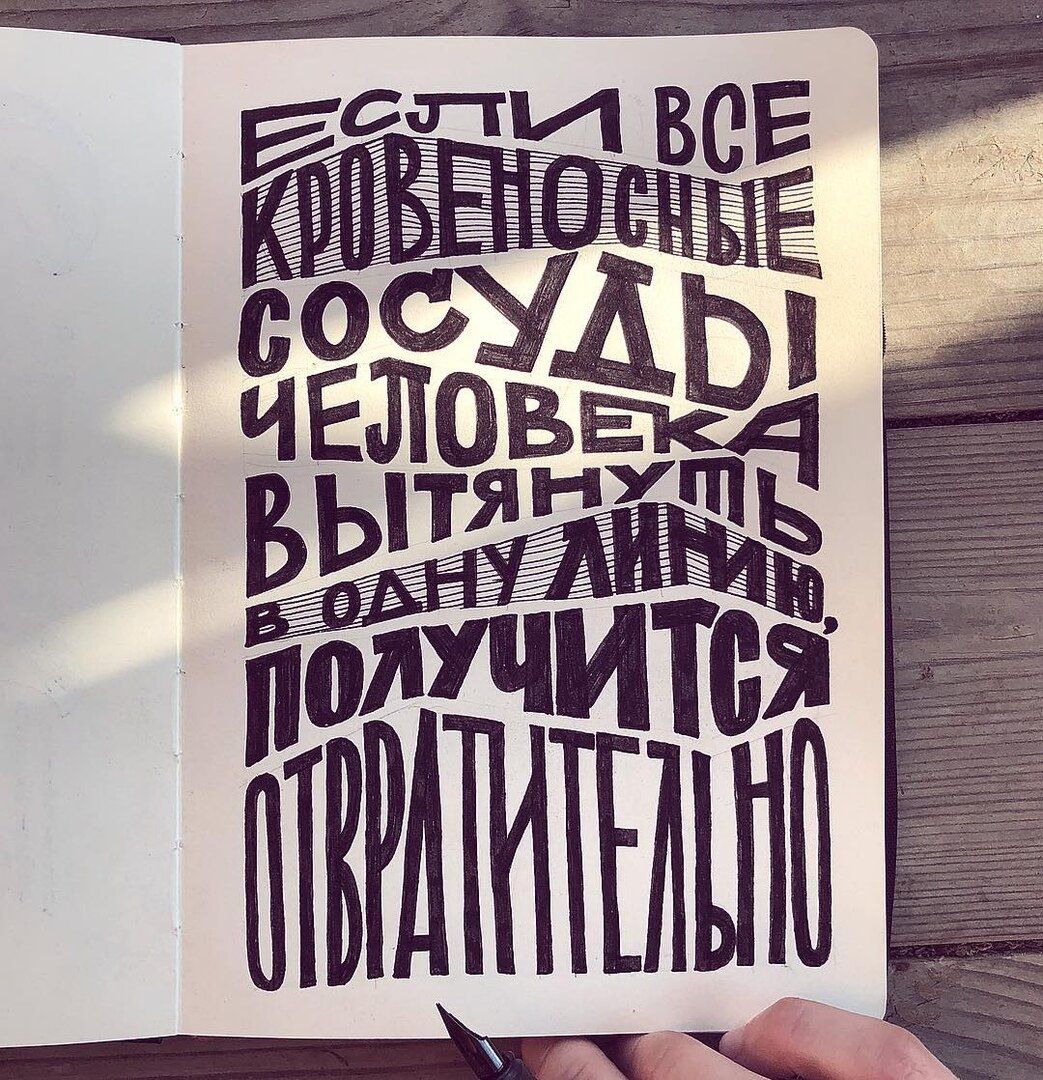 ЕСЛИ ВСЕ
КРОВЕНОСНЫЕ
СОСУДЫ
ЧЕЛОВЕКА
ВЫТЯНУТЬ
В ОДНУ ЛИНИЮ,
ПОЛУЧИТСЯ
ОТВРАТИТЕЛЬНО